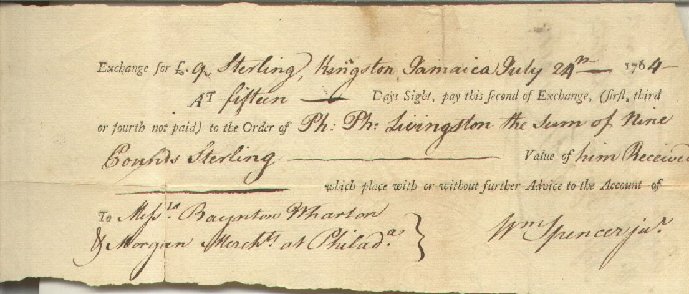 Exchange for £ 9, Sterling, Kingston, Jamaica July 24th 1764
At fifteen Days Sight, pay this second of Exchange, (first, third
or fourth not paid) to the Order of Ph: Ph: Livingston the Sum of Nine
Pounds Sterling Value of him Received
which place with or without further Advice to the Account of
To Messrs. Baynton Wharton
& Morgan Merchts at Philada.
Wm Spencer junr.